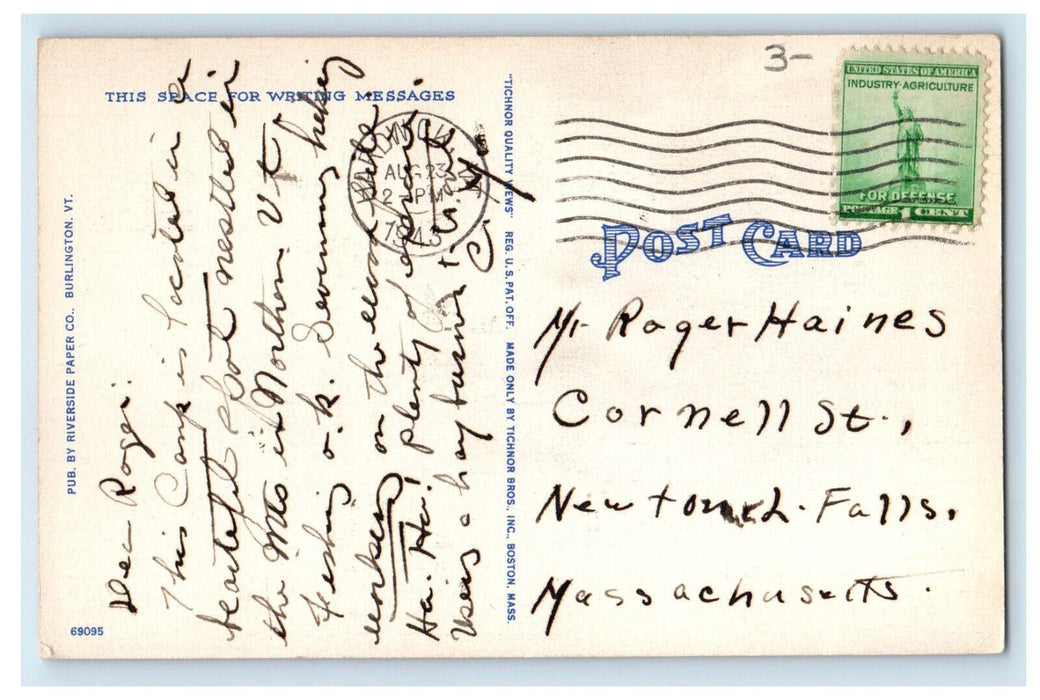 THIS SPACE FOR WRITING MESSAGES
Dear Roger:
This Camp is located in a
beautiful spot nestled in
the Mts in Northern Vt.
Fishing o.k. Swimming
working on the wood pile
Ha. Ha! plenty of
Using a hay burner
PUB. BY RIVERSIDE PAPER CO., BURLINGTON, VT.
69095
"TICHNOR QUALITY VIEWS" REG. U.S. PAT. OFF. MADE ONLY BY TICHNOR BROS., INC., BOSTON, MASS.
3-
AUG 23
2 PM
1943
UNITED STATES OF AMERICA
INDUSTRY-AGRICULTURE
FOR DEFENSE
POSTAGE 1 CENTS
POST CARD
Mr Roger Haines
Cornell St.,
Newton L. Falls.
Massachusetts.